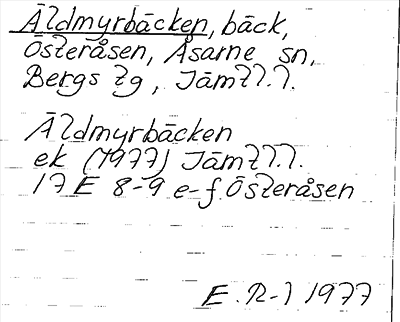 Äldmyrbäcken, bäck,
Österåsen, Åsarne sn,
Bergs tg, Jämtl.l.
Äldmyrbäcken
ek (1977) Jämtl.l.
17 E 8-9 e-f Österåsen
E. R-l 1977